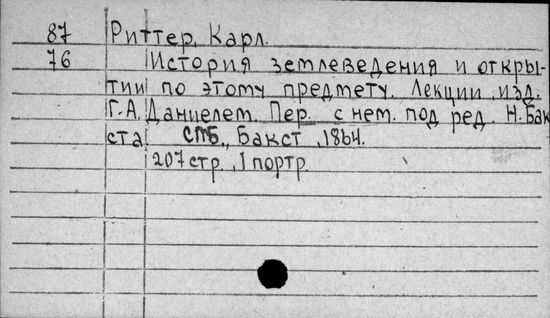 87 Риттер, Карл.
76 История землеведения и откры-
тии по этому предмету. Лекции, изд.
Г.А. Даниелем. Пер. с нем. под ред. Н. Бак
ста СПБ., Бакст, 1864.
207 стр., 1 портр.